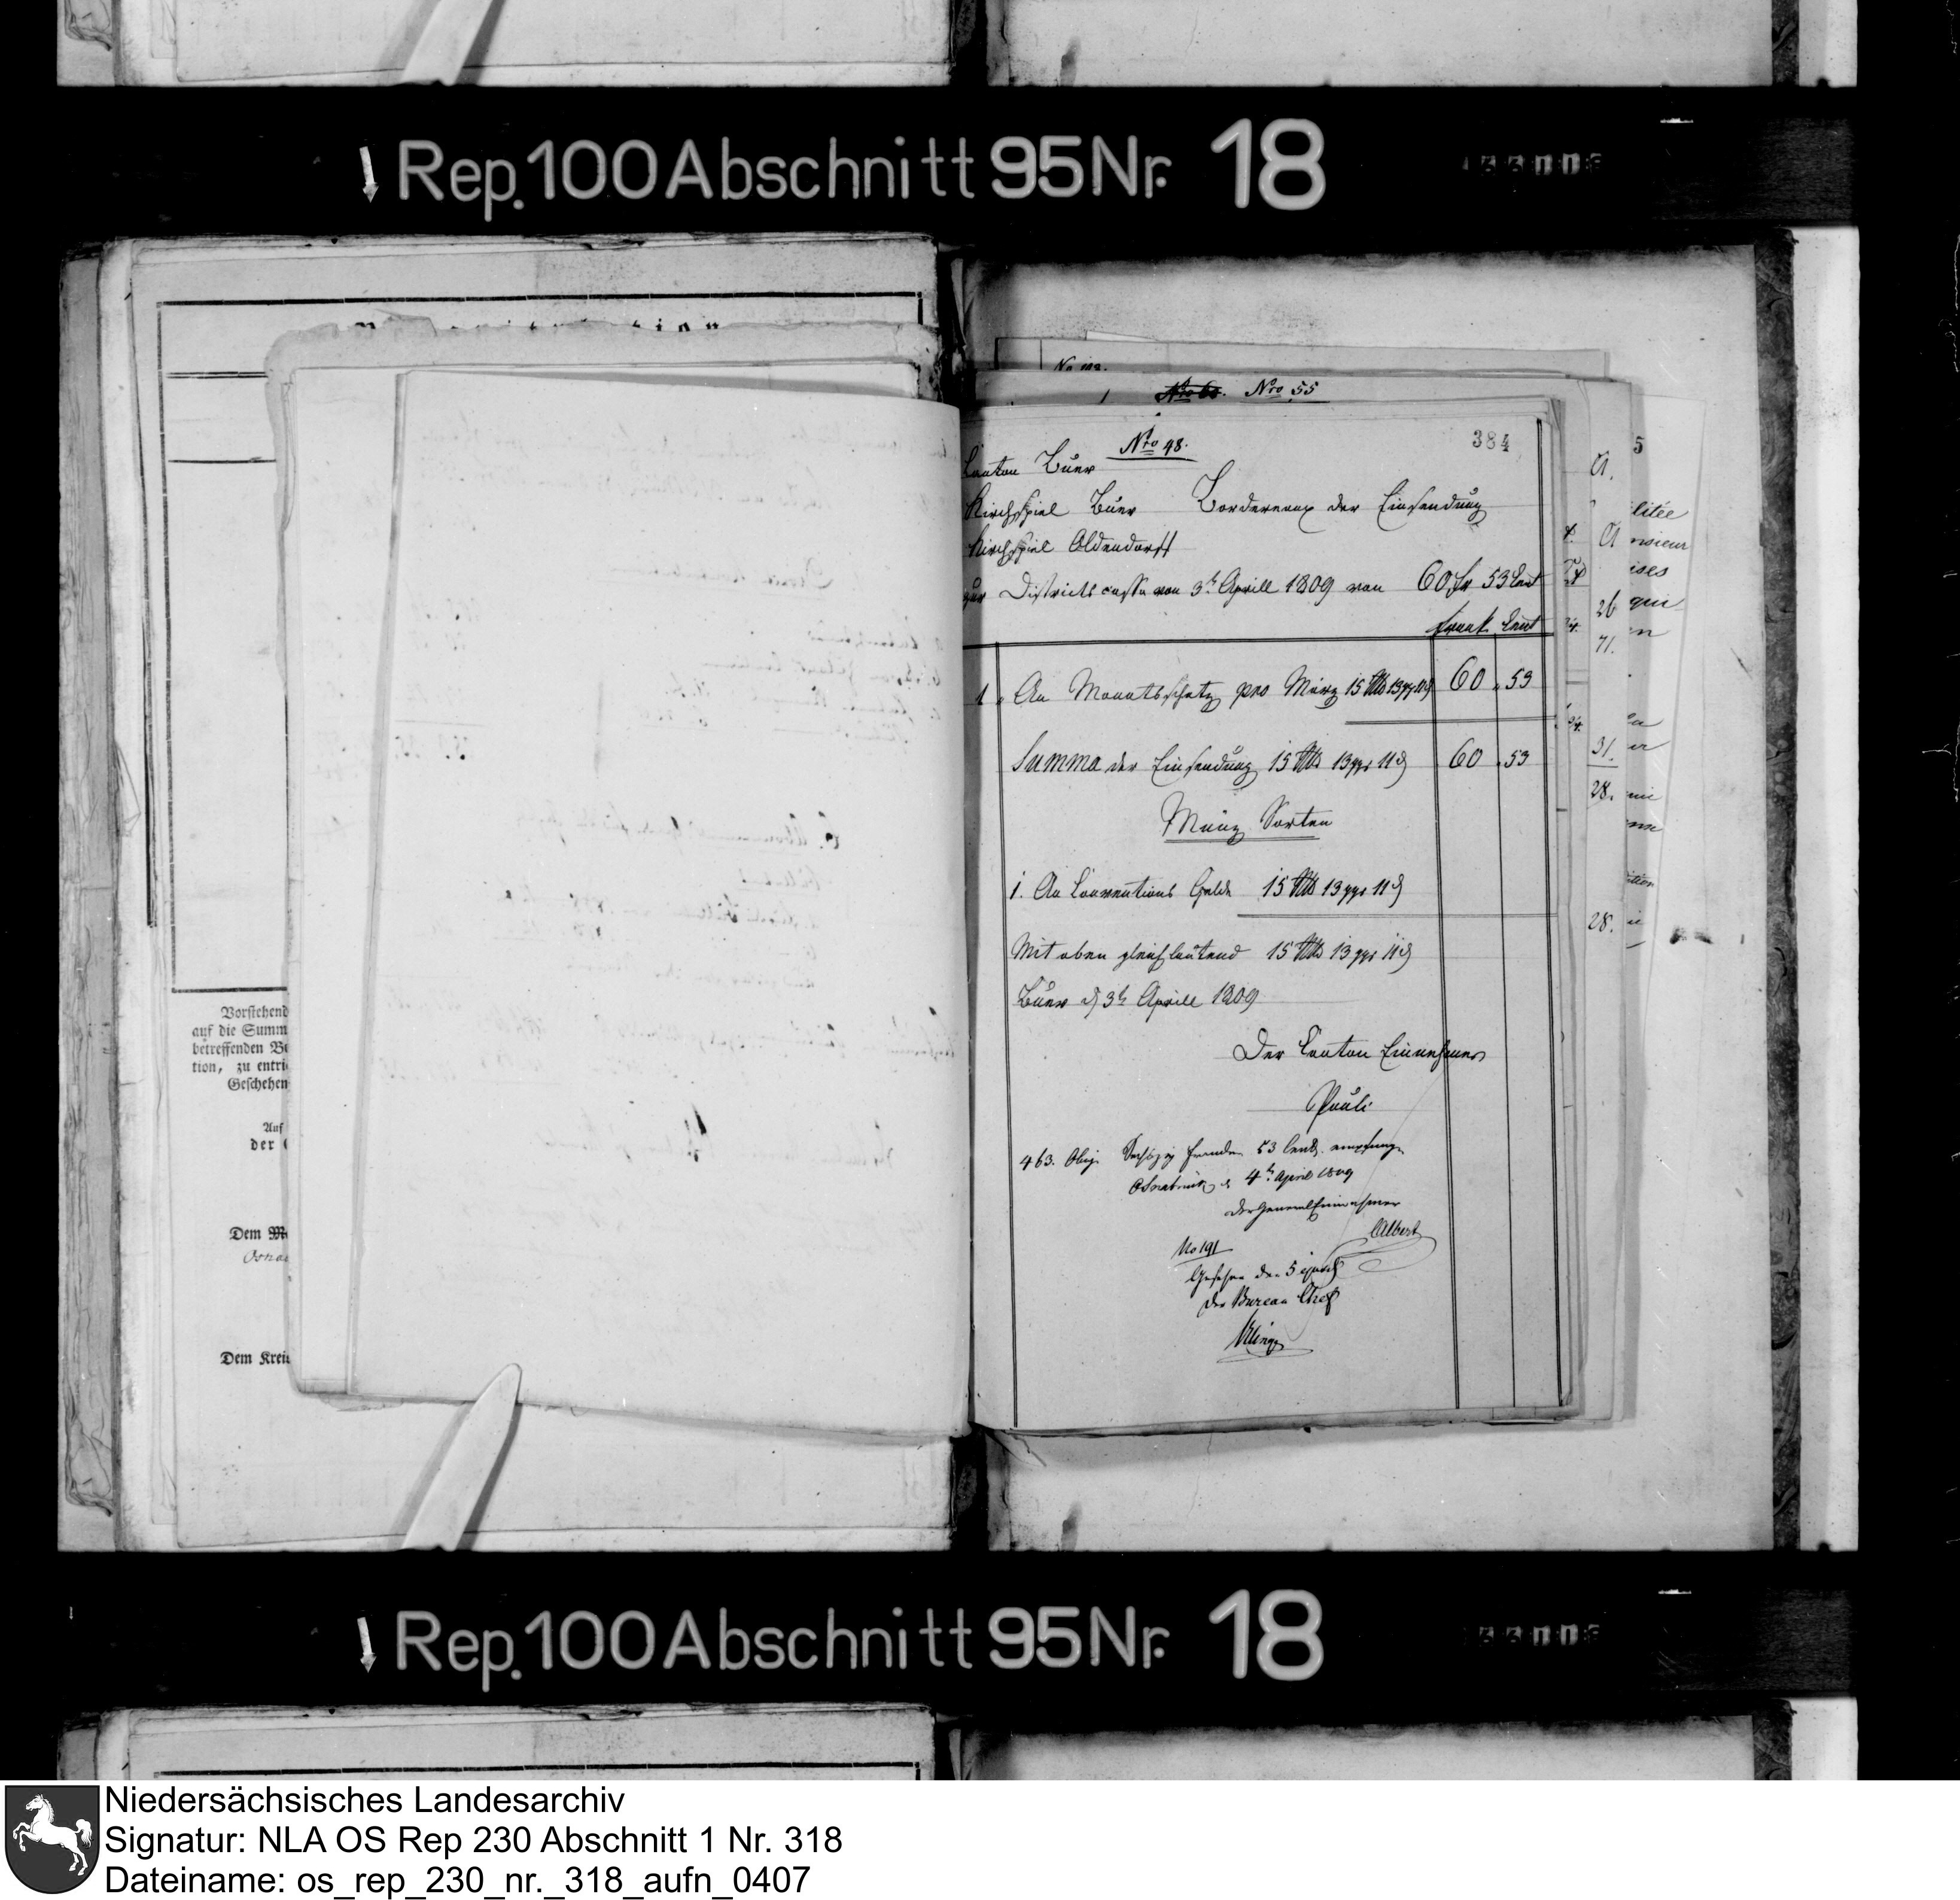 Rep. 100 Abschnitt 95 Nr. 18
Nro 55
Nro 48.
384
Canton Buer
Kirchspiel Buer Bordereaux der Einsendung
Kirchspiel Oldendorff
zur Districts cassa von 3t Aprill 1809 von 60 fr 53 Cent
frank Cent
1. An Monatsschatz pro März 15 Rtlr 13 ggr 11 d 60 . 53
Summa der Einsendung 15 Rtlr 13 ggr 11 d 60 . 53
Münz Sorten
1. An Conventions Gelde 15 Rtlr 13 ggr 11 d
Mit oben gleichlautend 15 Rtlr 13 ggr 11 d
Buer d 3t Aprill 1809
Der Canton Einnehmer
Pauli
463. Obige Sechszig franken 53 Cent. empfangen
Osnabrück d 4t April 1809
Der General Einnehmer
Albert
No 191
Gesehen den 5 ejusd
Der Bureau Chef
Vorstehend
auf die Summ
betreffenden Be
tion, zu entri
Geschehen
Auf
der
Dem
Osna
Dem Krei
26
71.
31.
28.
28.
Rep. 100 Abschnitt 95 Nr. 18
Niedersächsisches Landesarchiv
Signatur: NLA OS Rep 230 Abschnitt 1 Nr. 318
Dateiname: os_rep_230_nr._318_aufn_0407